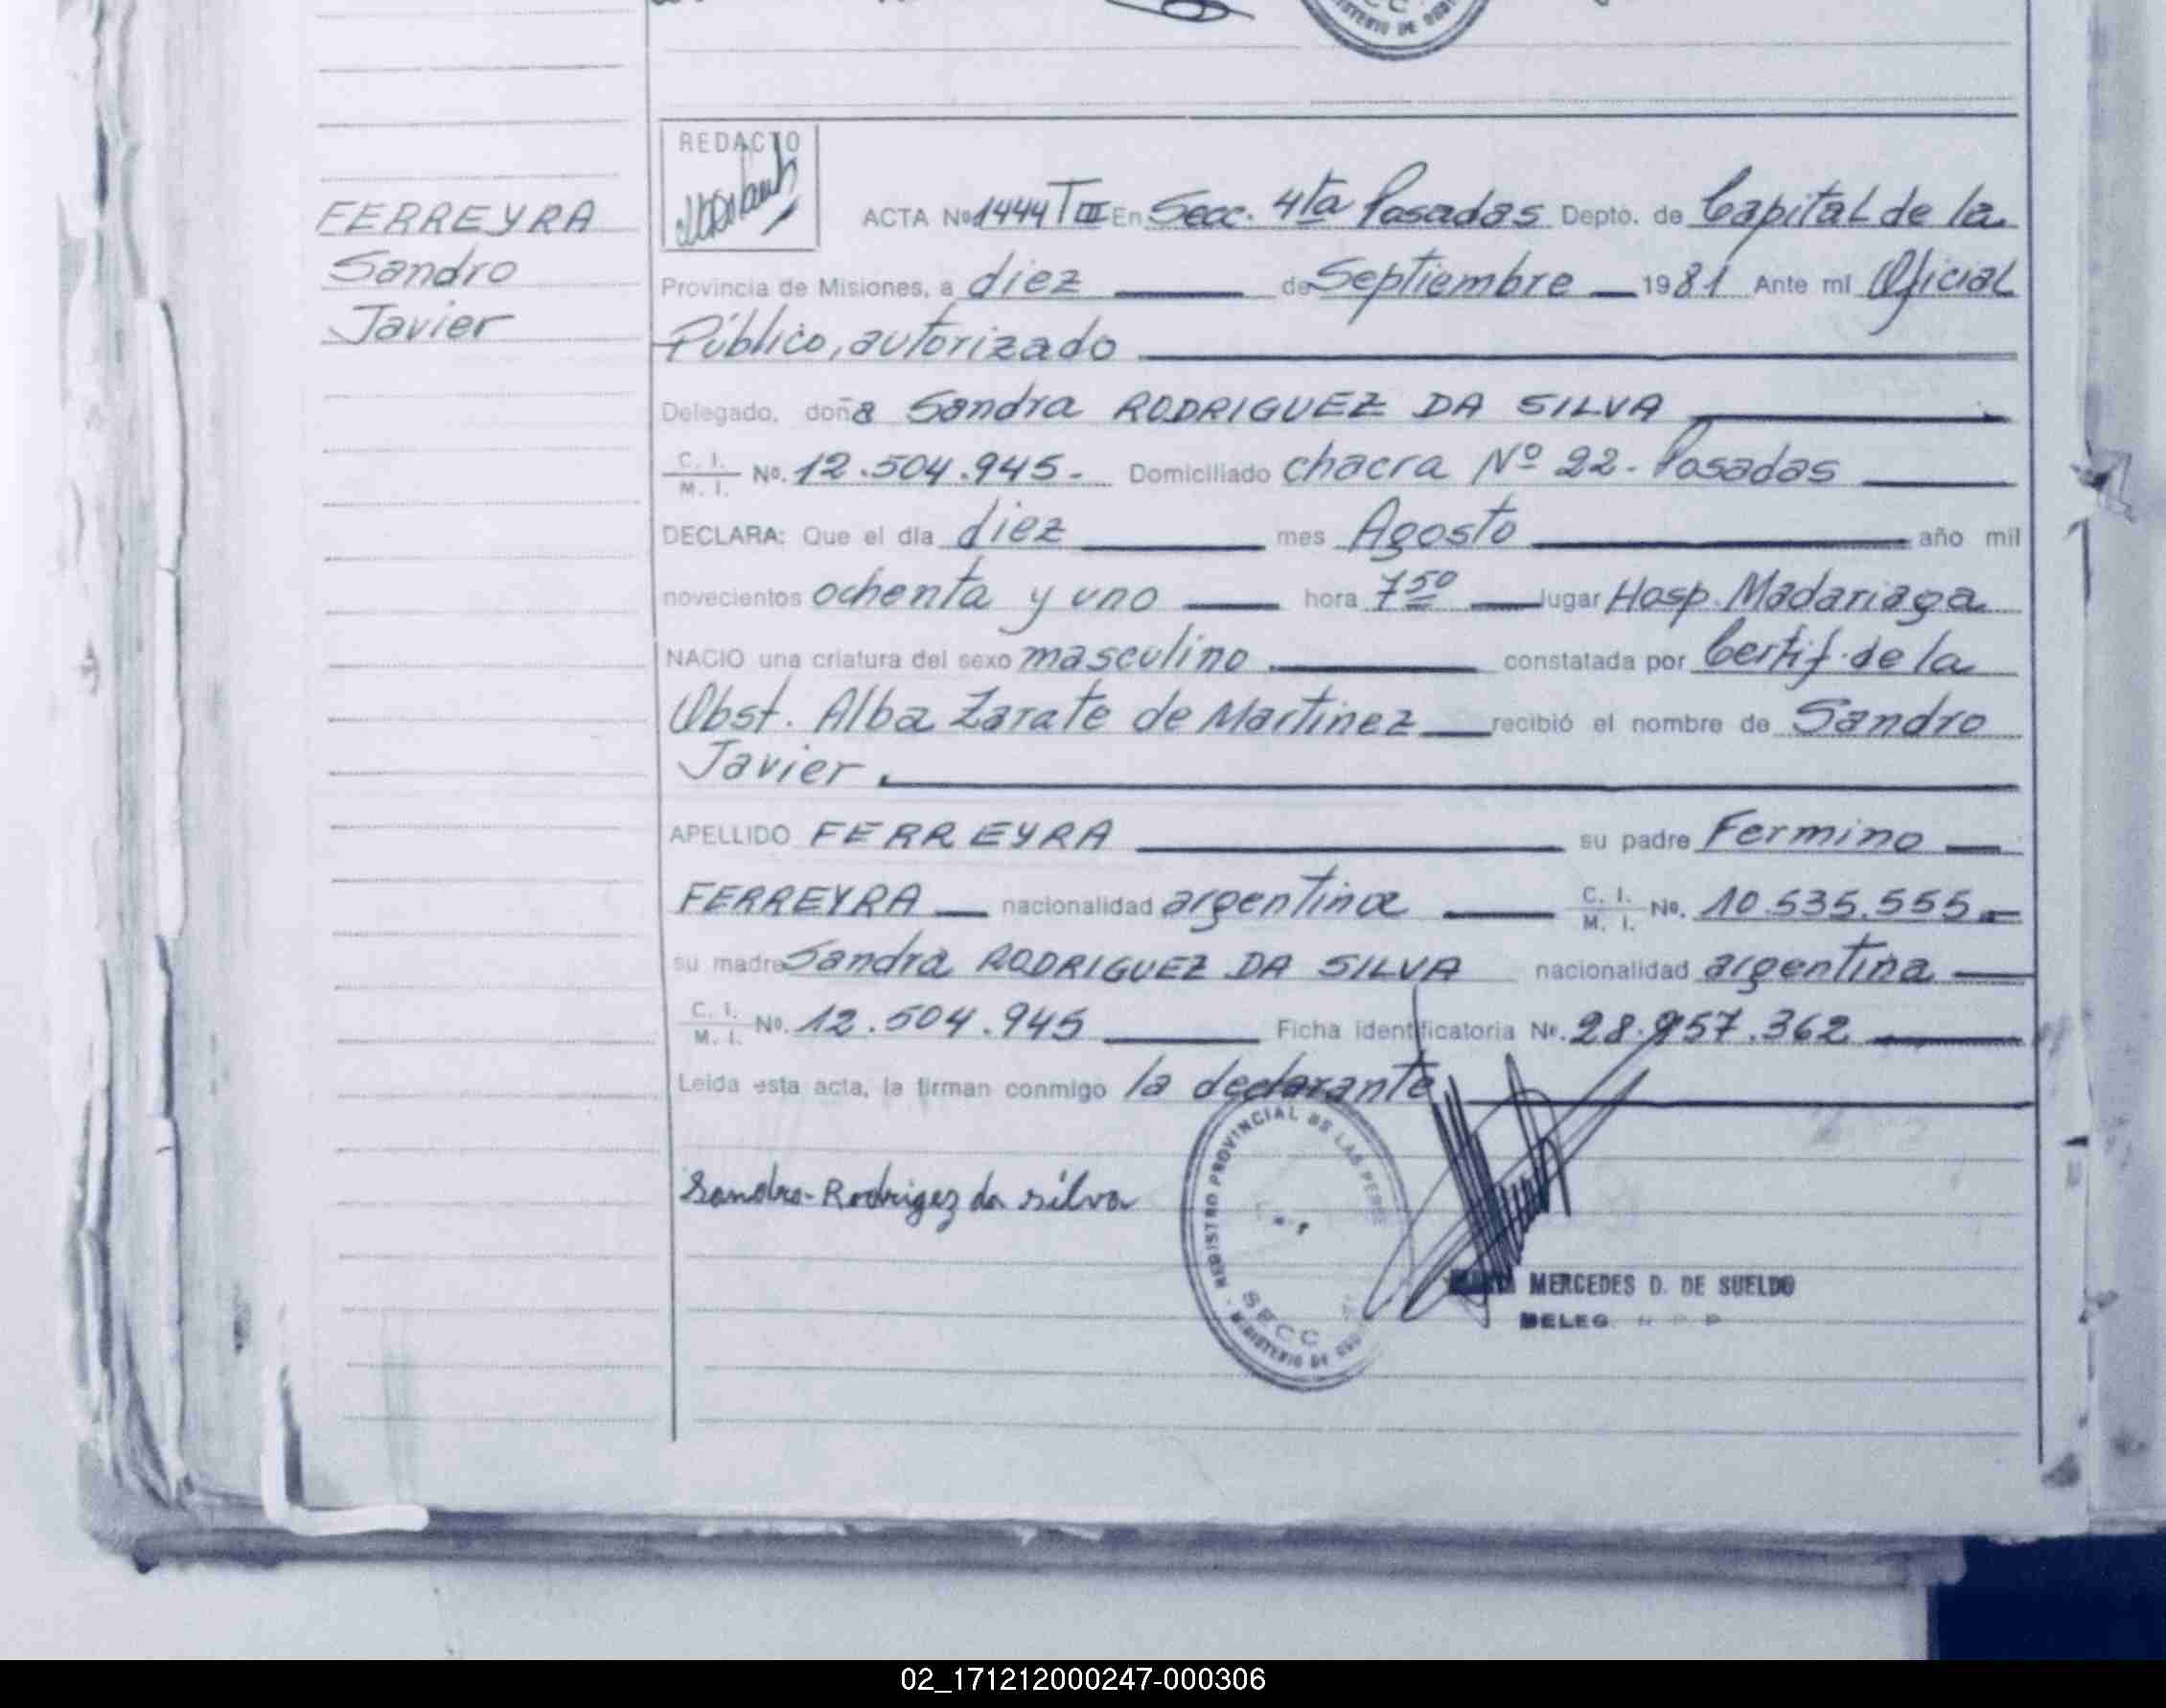 REDACTO
ACTA Nº 1444 T III En Secc. 4ta Posadas Depto. de Capital de la
FERREYRA
Sandro
Javier
Provincia de Misiones, a diez de Septiembre 1981 Ante mi Oficial
Público, autorizado
Delegado, doña Sandra RODRIGUEZ DA SILVA
C. I. M. I. No. 12.504.945.- Domiciliado chacra Nº 22. Posadas
DECLARA: Que el dia diez mes Agosto año mil
novecientos ochenta y uno hora 7 50 lugar Hosp. Madariaga
NACIO una criatura del sexo masculino constatada por Certif. de la
Obst. Alba Zarate de Martinez recibió el nombre de Sandro
Javier
APELLIDO FERREYRA su padre Fermino
FERREYRA nacionalidad argentina C. I. M. I. No. 10.535.555.-
su madre Sandra RODRIGUEZ DA SILVA nacionalidad argentina
C. I. M. I. No. 12.504.945 Ficha identificatoria Nº. 28.957.362
Leida esta acta, la firman conmigo la declarante
REGISTRO PROVINCIAL DE LAS PERS
SECC
MINISTERIO DE GOB
Sandra-Rodrigez da silva
MERCEDES D. DE SUELDO
DELEG.
02_171212000247-000306